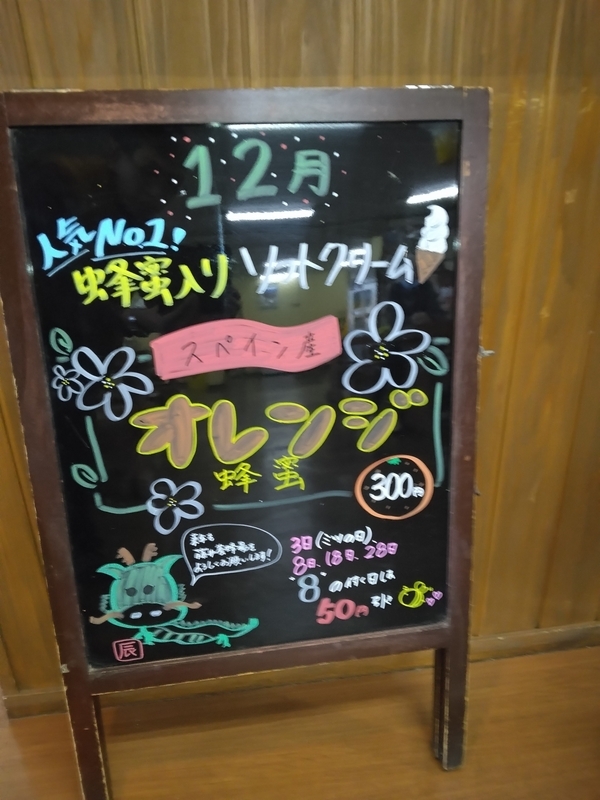 12月
人気No.1!
蜂蜜入りソフトクリーム
スペイン産
オレンジ
蜂蜜
300円
来年も
よろしくお願いします!
3日(ミツの日)
8日、18日、28日
"8"の付く日は
50円引き
辰